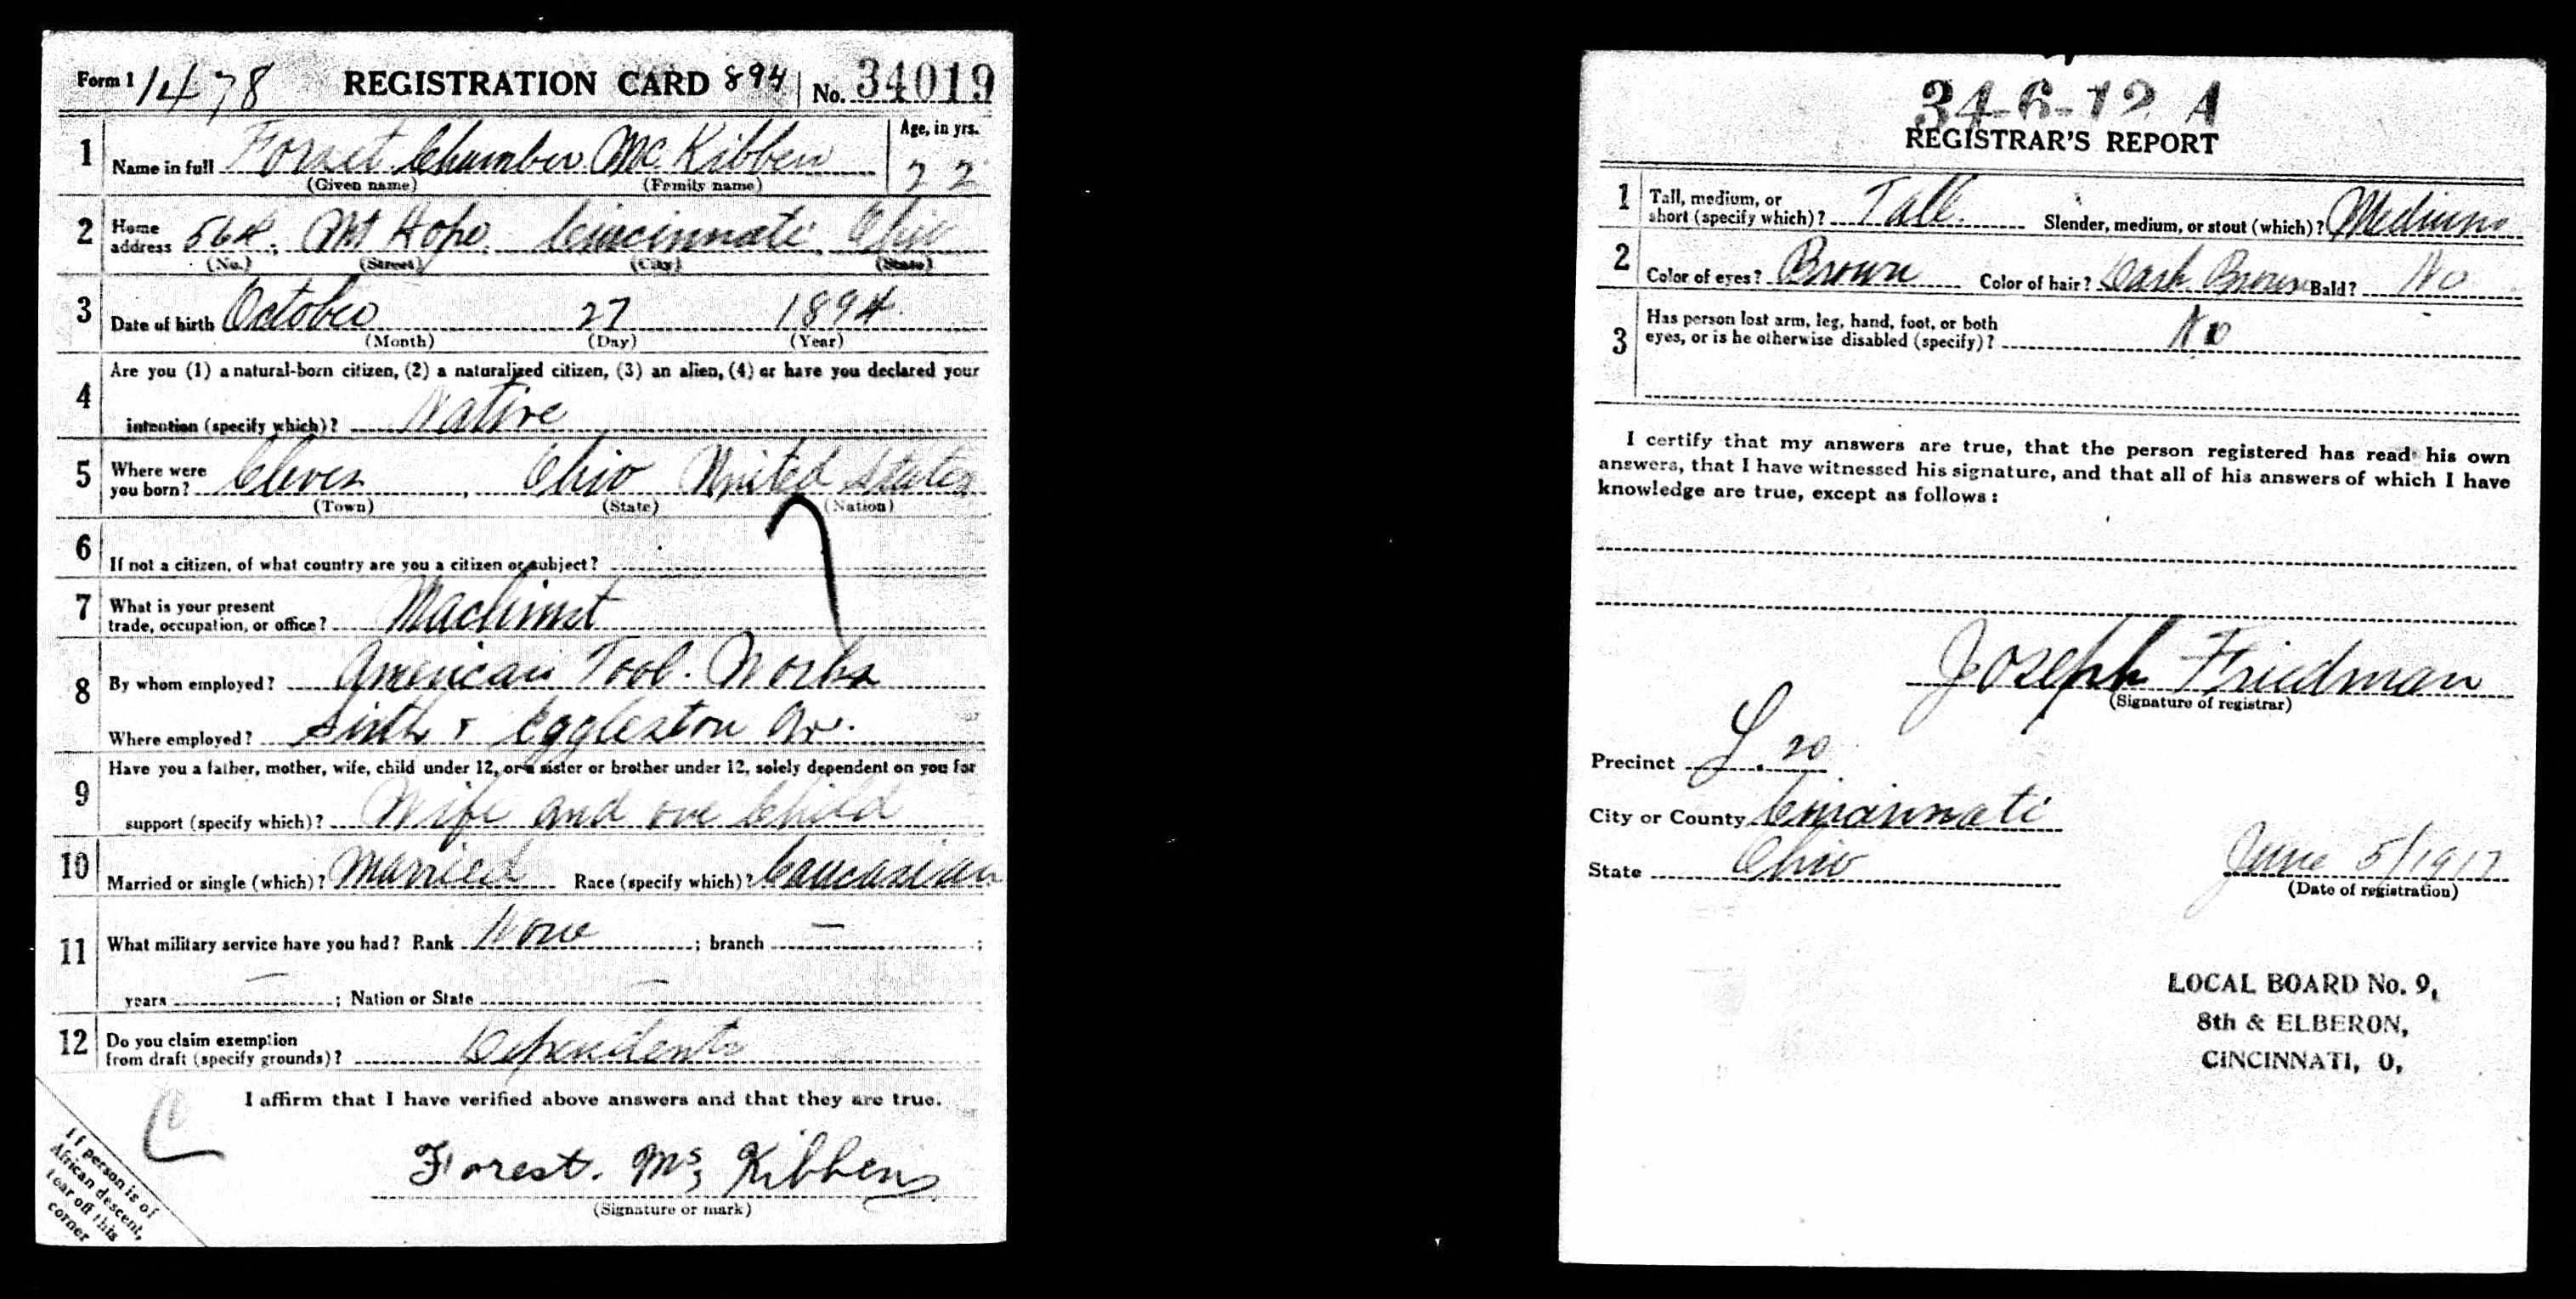 Form 1 1478 REGISTRATION CARD 894 No. 34019
1 Name in full Forest Chamber McKibben Age, in yrs. 22
(Given name) (Family name)
2 Home address 564 Mt Hope Cincinnati Ohio
(No.) (Street) (City) (State)
3 Date of birth October 27 1894
(Month) (Day) (Year)
4 Are you (1) a natural-born citizen, (2) a naturalized citizen, (3) an alien, (4) or have you declared your
intention (specify which)? Native
5 Where were you born? Cleves, Ohio United States
(Town) (State) (Nation)
6 If not a citizen, of what country are you a citizen or subject?
7 What is your present trade, occupation, or office? Machinist
8 By whom employed? American Tool. Works
Where employed? Sixth & Eggleston Av.
9 Have you a father, mother, wife, child under 12, or a sister or brother under 12, solely dependent on you for
support (specify which)? Wife and one Child
10 Married or single (which)? Married Race (specify which)? Caucasian
11 What military service have you had? Rank None ; branch — ;
years — ; Nation or State —
12 Do you claim exemption from draft (specify grounds)? Dependents
I affirm that I have verified above answers and that they are true.
Forest. Mc Kibben
(Signature or mark)
If person is of
African descent,
tear off this
corner
34-6-12 A
REGISTRAR'S REPORT
1 Tall, medium, or short (specify which)? Tall. Slender, medium, or stout (which)? Medium
2 Color of eyes? Brown Color of hair? Dark Brown Bald? No
3 Has person lost arm, leg, hand, foot, or both
eyes, or is he otherwise disabled (specify)? No
I certify that my answers are true, that the person registered has read his own
answers, that I have witnessed his signature, and that all of his answers of which I have
knowledge are true, except as follows:
Joseph Friedman
(Signature of registrar)
Precinct 20
City or County Cincinnati
State Ohio June 5/1917
(Date of registration)
LOCAL BOARD No. 9,
8th & ELBERON,
CINCINNATI, O,